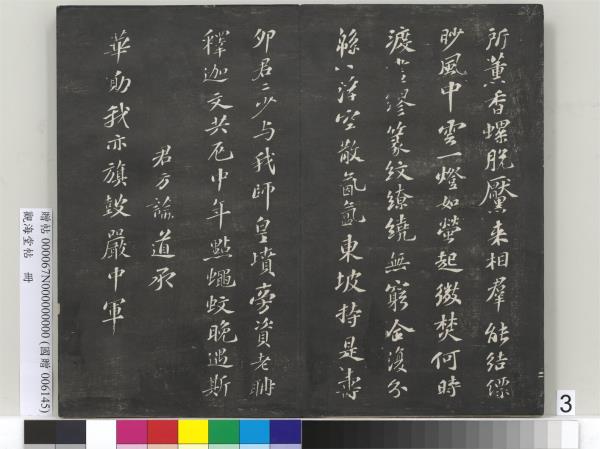 所薰香螺脫黶來相羣能結縹
眇風中雲一燈如螢起微焚何時
渡盡繆篆紋繚繞無窮合復分
緜〻浮空散氤氳東坡持是壽
卯君〻少与我師皇墳旁資老聃
釋迦文共厄中年點蠅蚊晚遇斯
君方論道承
華勛我亦旗鼓嚴中軍
贈帖 000067N000000000 (國贈 006145)
觀海堂帖 冊
3